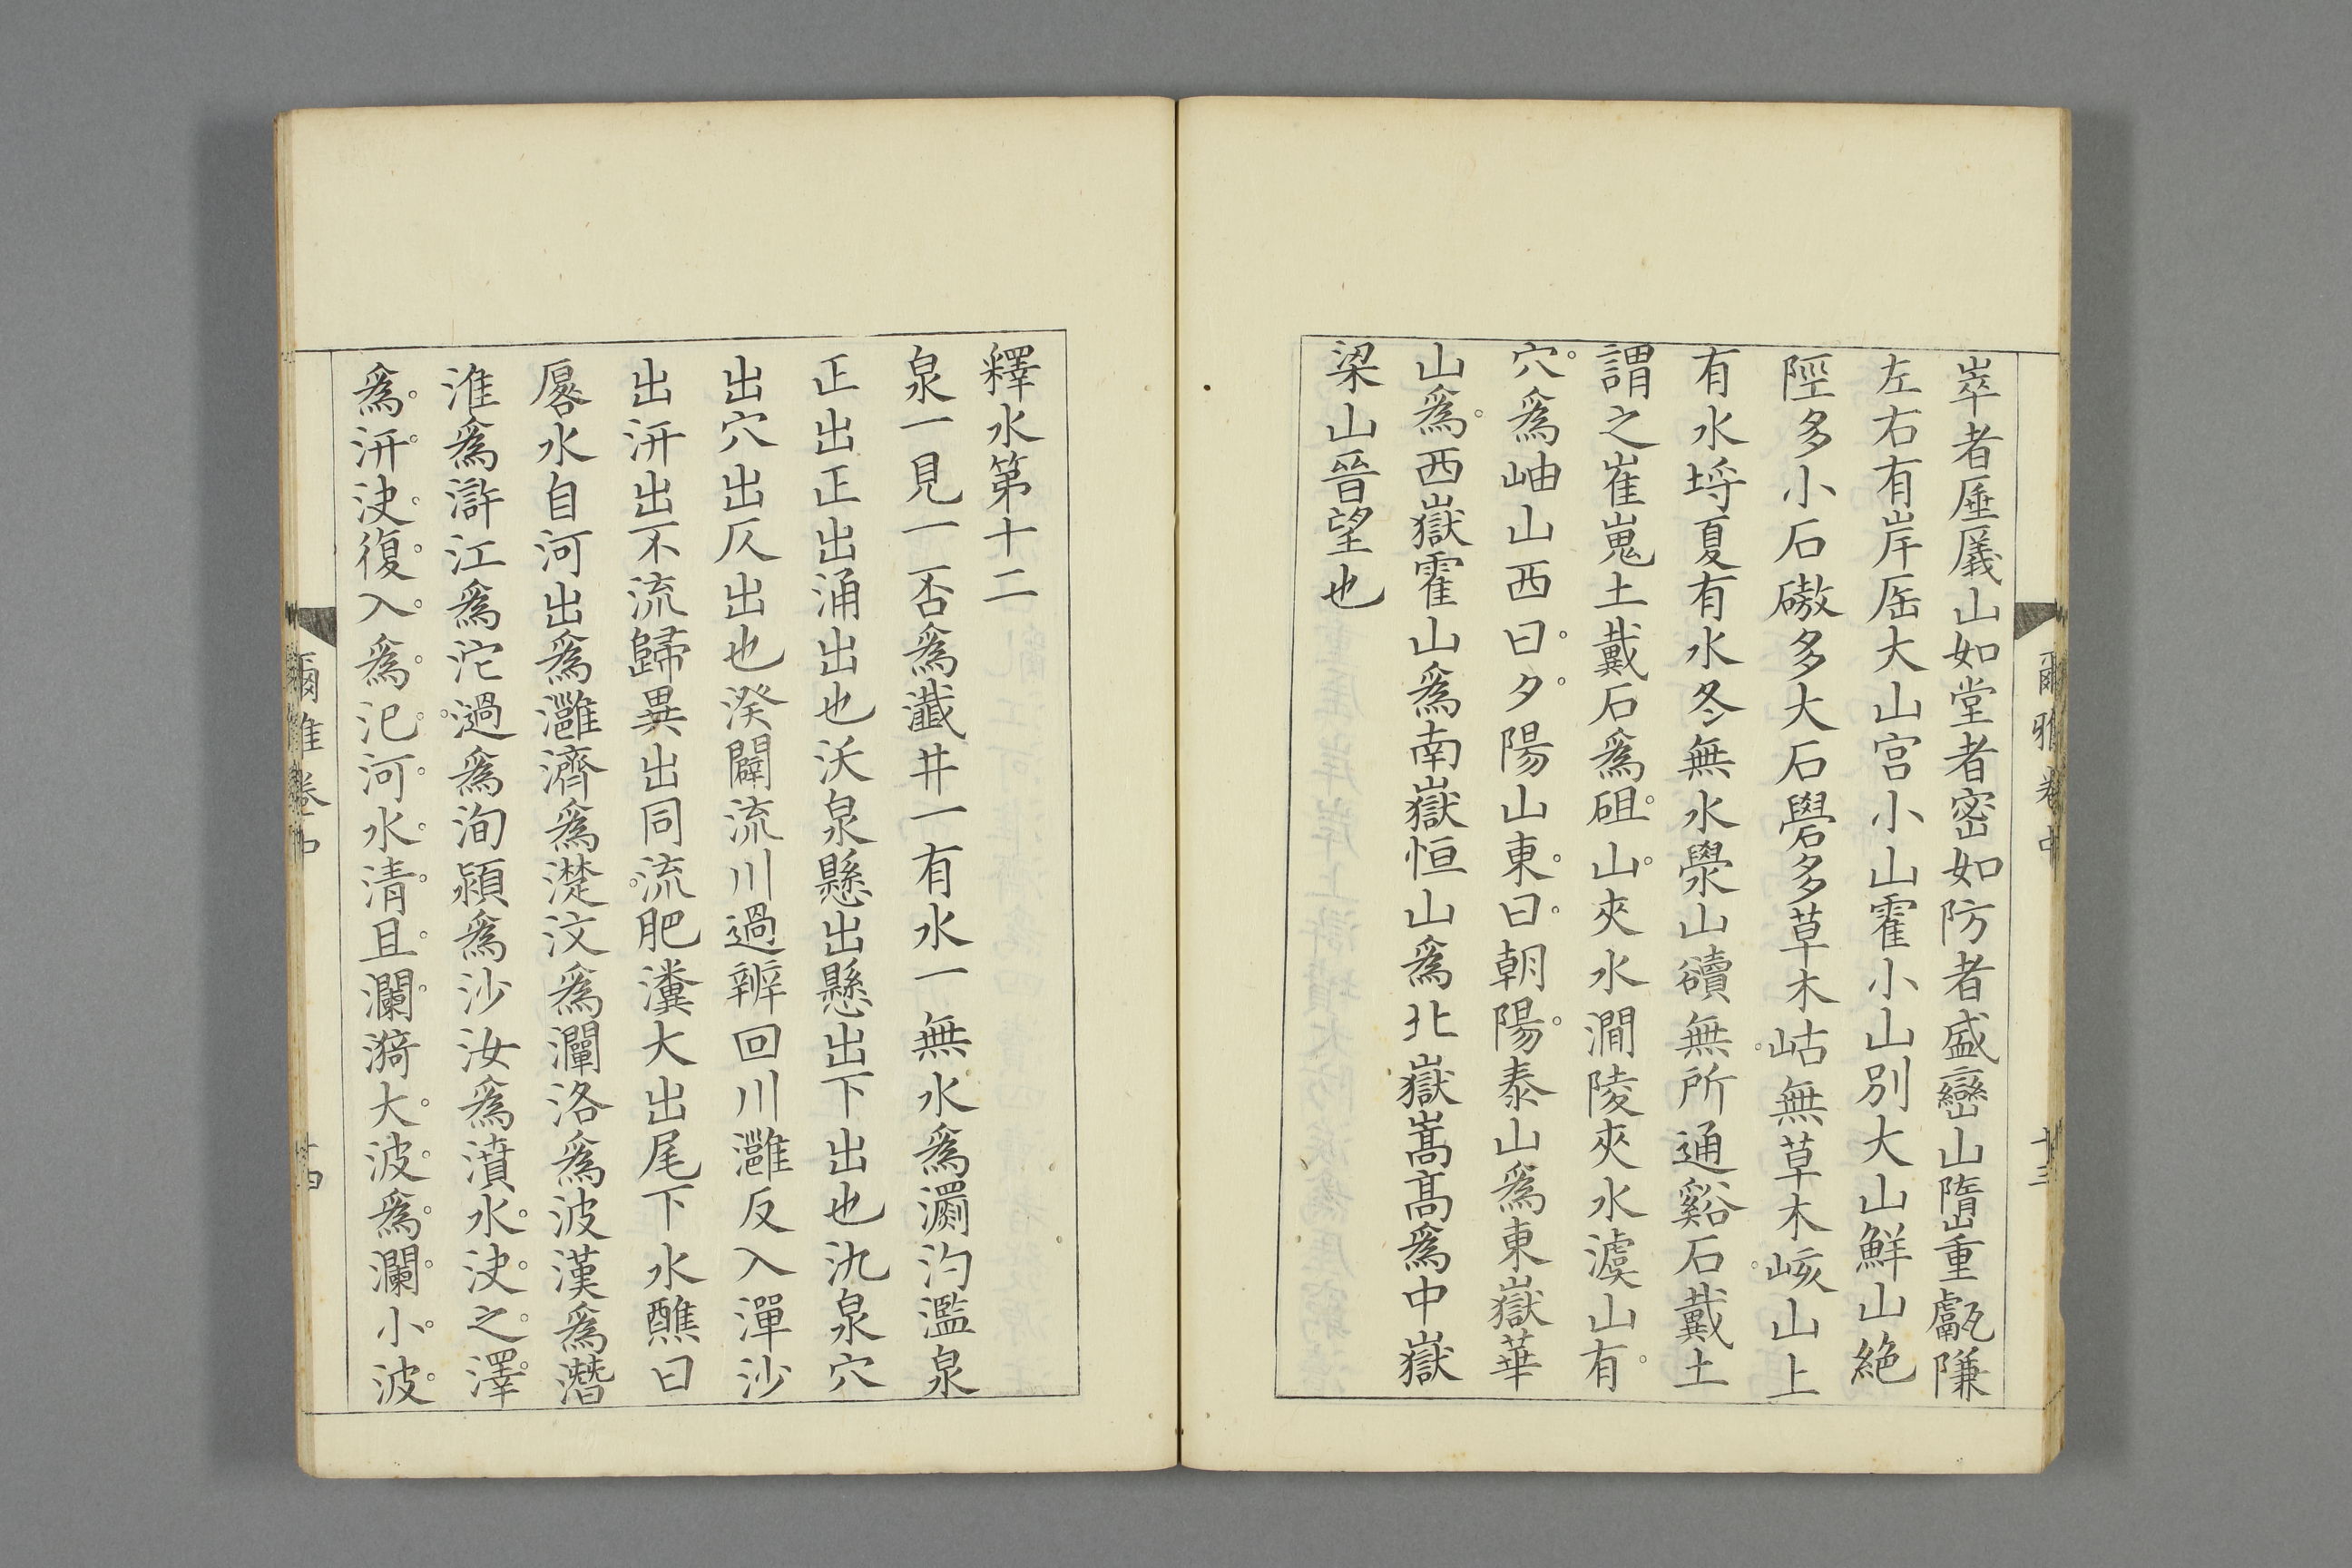 爾雅卷中
十三
崒者厜㕒山如堂者密如防者盛巒山墮重甗隒
左右有岸厒大山宮小山霍小山別大山鮮山絶
陘多小石磝多大石礐多草木岵無草木峐山上
有水埒夏有水冬無水澩山𧮾無所通谿石戴土
謂之崔嵬土戴石爲砠山夾水澗陵夾水澞山有
穴爲岫山西曰夕陽山東曰朝陽泰山爲東嶽華
山爲西嶽霍山爲南嶽恒山爲北嶽嵩髙爲中嶽
梁山晉望也
釋水第十二
泉一見一否爲瀸井一有水一無水爲瀱汋濫泉
正出正出涌出也沃泉懸出懸出下出也氿泉穴
出穴出仄出也湀闢流川過辨回川灉反入潬沙
出汧出不流歸異出同流肥瀵大出尾下水醮曰
厬水自河出爲灉濟爲濋汶爲灛洛爲波漢爲潛
淮爲滸江爲沱過爲洵潁爲沙汝爲濆水決之澤
爲汧決復入爲汜河水清且瀾漪大波爲瀾小波
爾雅卷中
十四